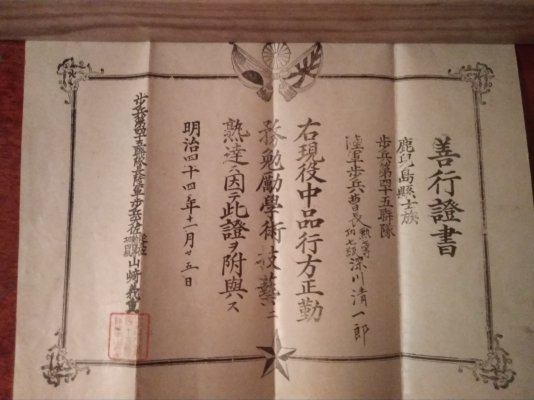 善行證書
鹿兒島縣士族
歩兵第四十五聯隊
陸軍歩兵曹長勲七等功七級深川清一郎
右現役中品行方正勤
務勉勵學術技藝ニ
熟達ス因テ此證ヲ附與ス
明治四十四年十一月廿五日
歩兵第四十五聯隊長陸軍歩兵大佐山崎